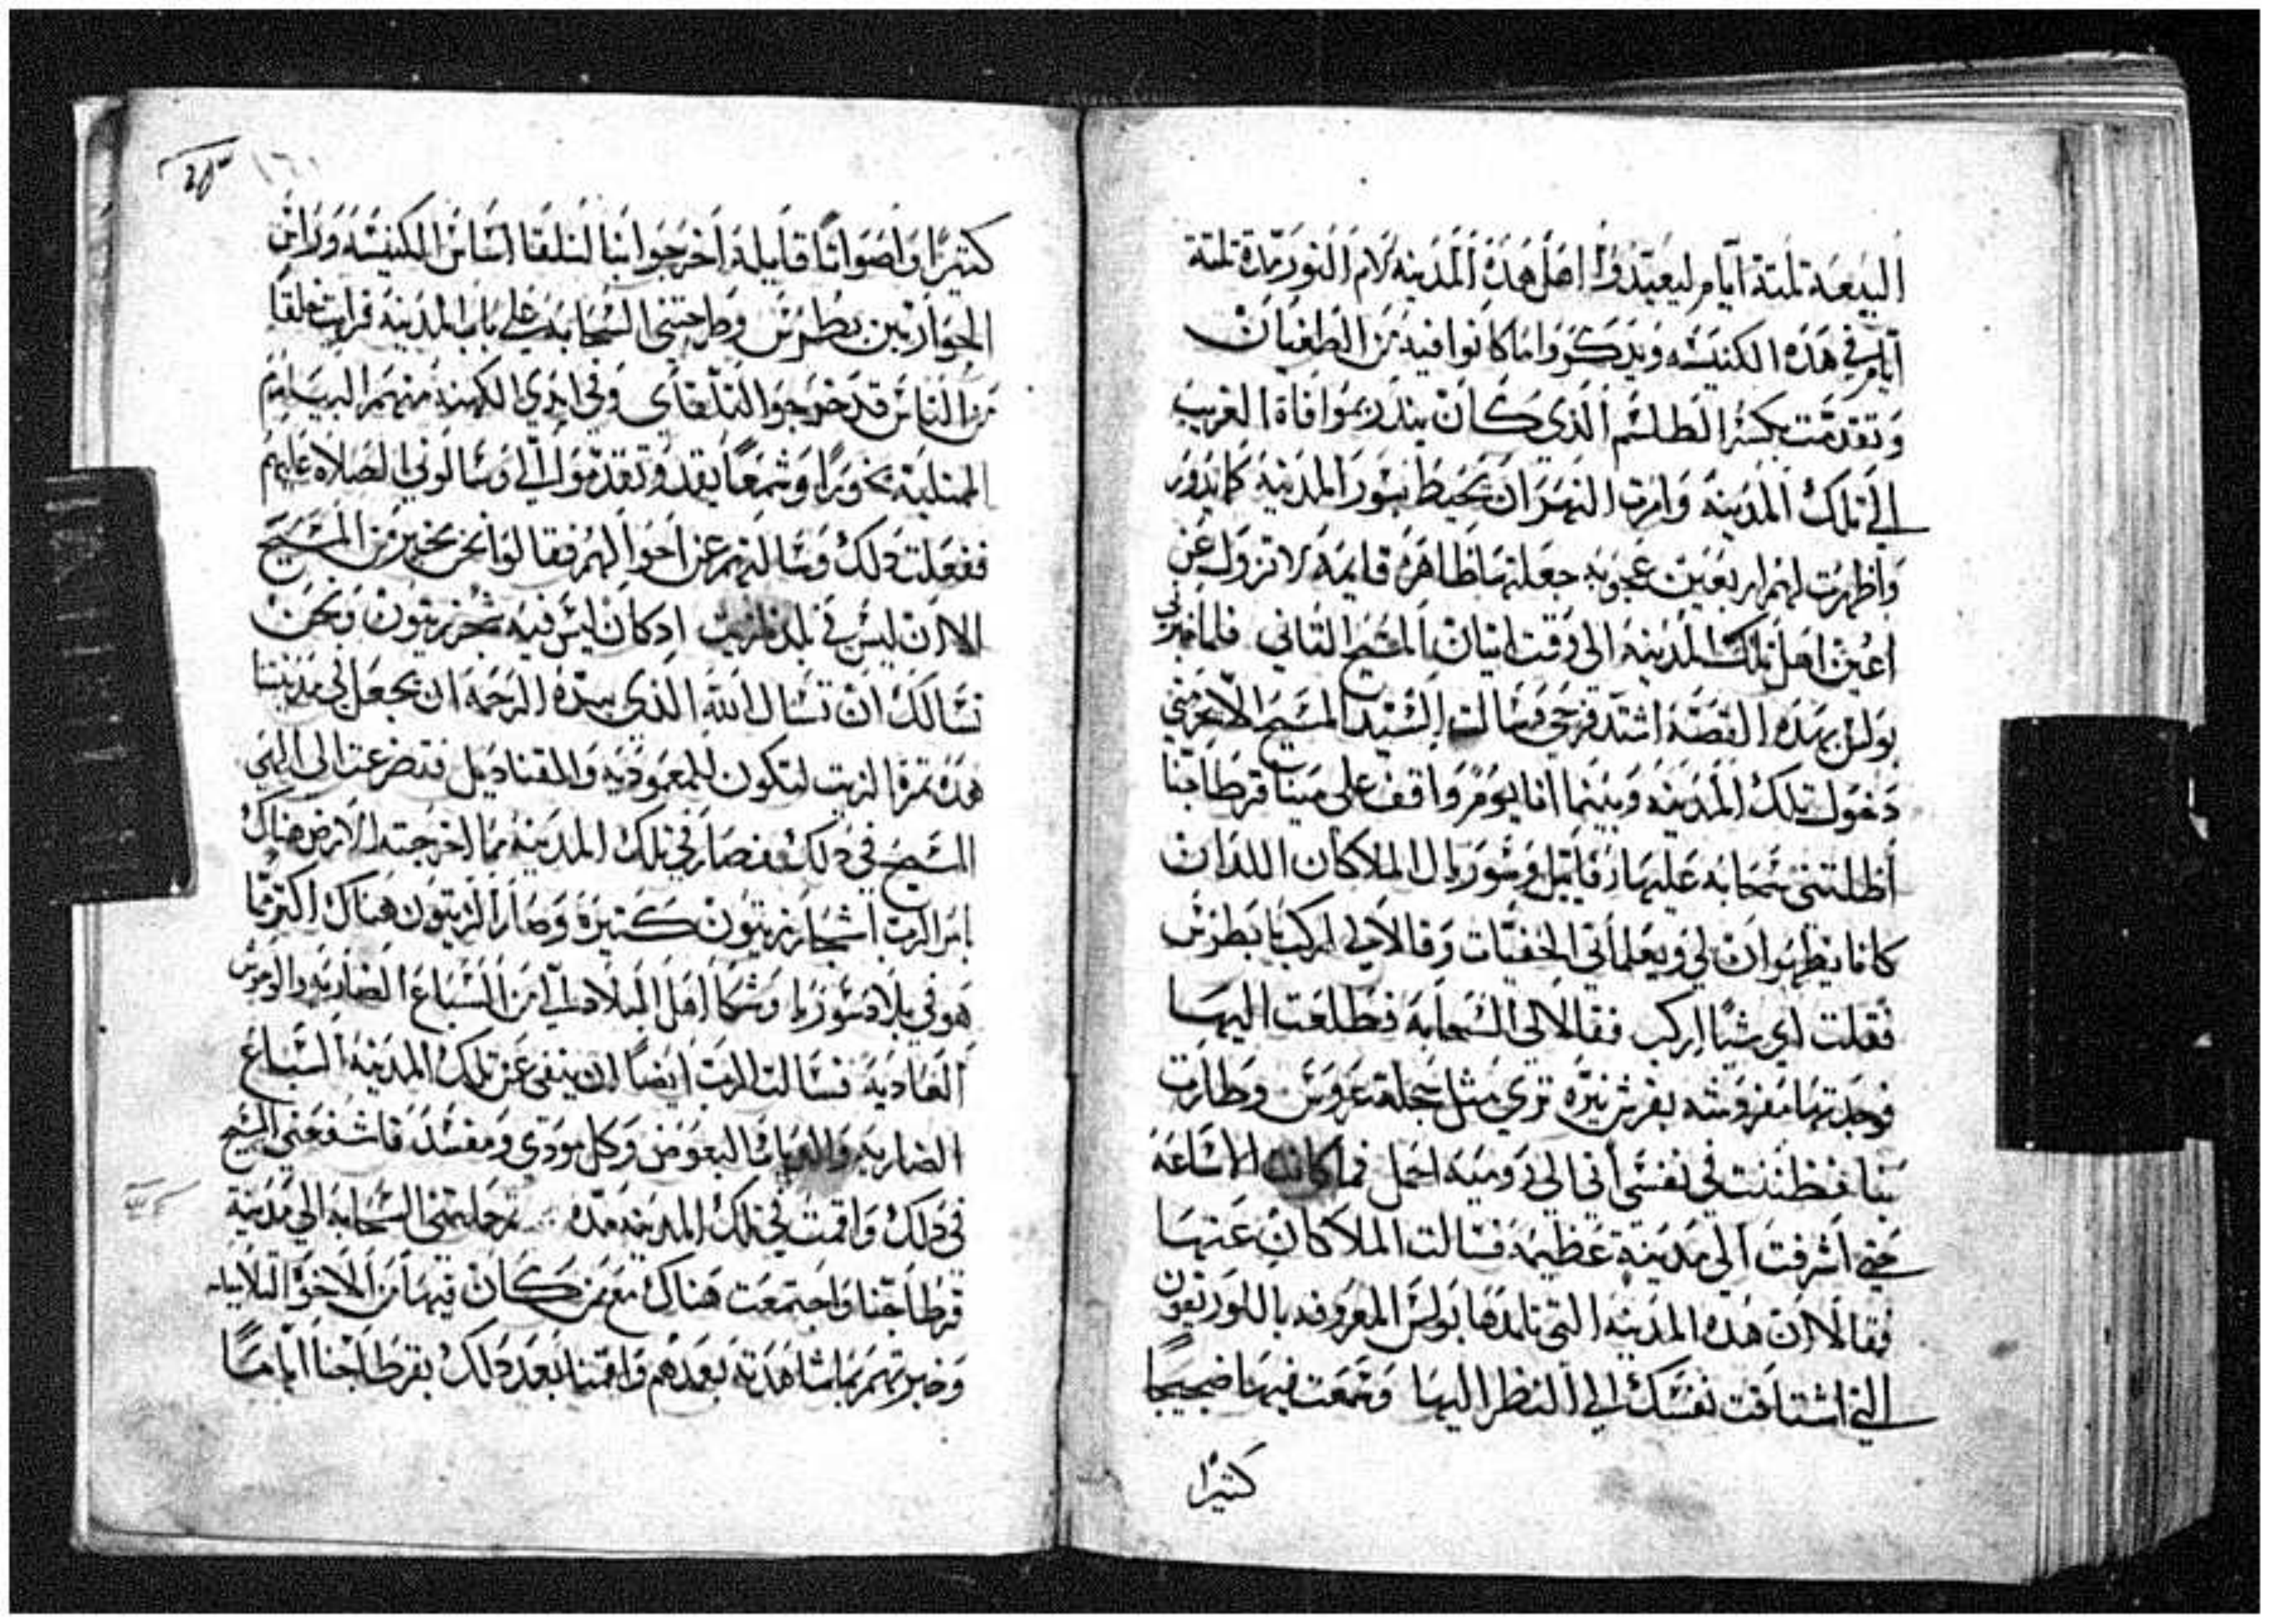 البدعة تلتة ايام ليعيدوا اهل هده المدينه لام النور تمدة تلتة
ايام في هده الكنيسه ويدكروا ما كانوا فيه من الطغيان
وتقدمت بكسر الطلسم الدي كان يندر بموافاة الغريب
الي تلك المدينه وامرت النهر ان يحيط بسور المدينه كما يدور
واظهرت لهم اربعين عجوبه جعلتها ظاهره قايمه لا تزول عن
اعين اهل تلك المدينه الى وقت اتيان المسيح التاني فلما خبرني
بولس بهده القصه اشتد فرحي وسالت السيد المسيح الا يحرمني
دخول تلك المدينه وبينما انا يوم واقف على مينا قرطاجنا
اظلتني سحابه عليها رفاييل وسوريال الملاكان اللدان
كانا يظهران لي ويعلماني الخفيات وقالا لي اركب يا بطرس
فقلت اي شيا اركب فقالا لي السحابه فطلعت اليها
فوجدتها مفروشه بفرش نيره تري مثل حجلة عروس وطارت
بنا فظننت في نفسي اني الي روميه احمل فما كانت الا ساعه
حتي اشرفت الي مدينة عظيمه فسالت الملاكان عنها
فقالا ان هده المدينه التي تلمدها بولس المعروفه باللوريقون
التي اشتاقت نفسك الي النظر اليها وسمعت فيها ضجيجا
كثيرا
كثيرا واصواتا قايله اخرجوا بنا لنلقا اساس الكنيسه وراس
الحواريين بطرس وطرحتني السحابه علي باب المدينه فرايت خلقا
من الناس قد خرجوا لتلقاي وفي ايدي الكهنه منهم
الممتلية بخورا وشمعا يقد وتقدموا الي وسالوني الصلاه عليهم
ففعلت دلك وسالتهم عن احوالهم فقالوا نحن بخير من المسيح
الا ان ليس في بلدنا زيت اد كان ليس فيه شجر زيتون ونحن
نسالك ان تسال الله الدي بيده الرحمه ان يجعل في مدينتنا
هده تمرة الزيت لتكون للمعموديه والقناديل فتضرعت الى الهي
المسيح في دلك فصار في تلك المدينه مما اخرجته الارض هناك
بامر الرب اشجار زيتون كتيرة وصار الزيتون هناك اكتر مما
هو في بلاد سوريا وشكا اهل البلاد الي من السباع الضاريه والوحوش
العاديه فسالت الرب ايضا ان ينفي عن تلك المدينه السباع
الضاريه والدباب البعوض وكل مودي ومفسد فاشفعني المسيح
في دلك واقمت في تلك المدينه مده تم حملتني السحابه الي مدينة
قرطاجنا واجتمعت هناك مع من كان فيها من الاخوة التلاميد
وخبرتهم بما شاهدته بعدهم واقمنا بعد دلك بقرطاجنا اياما